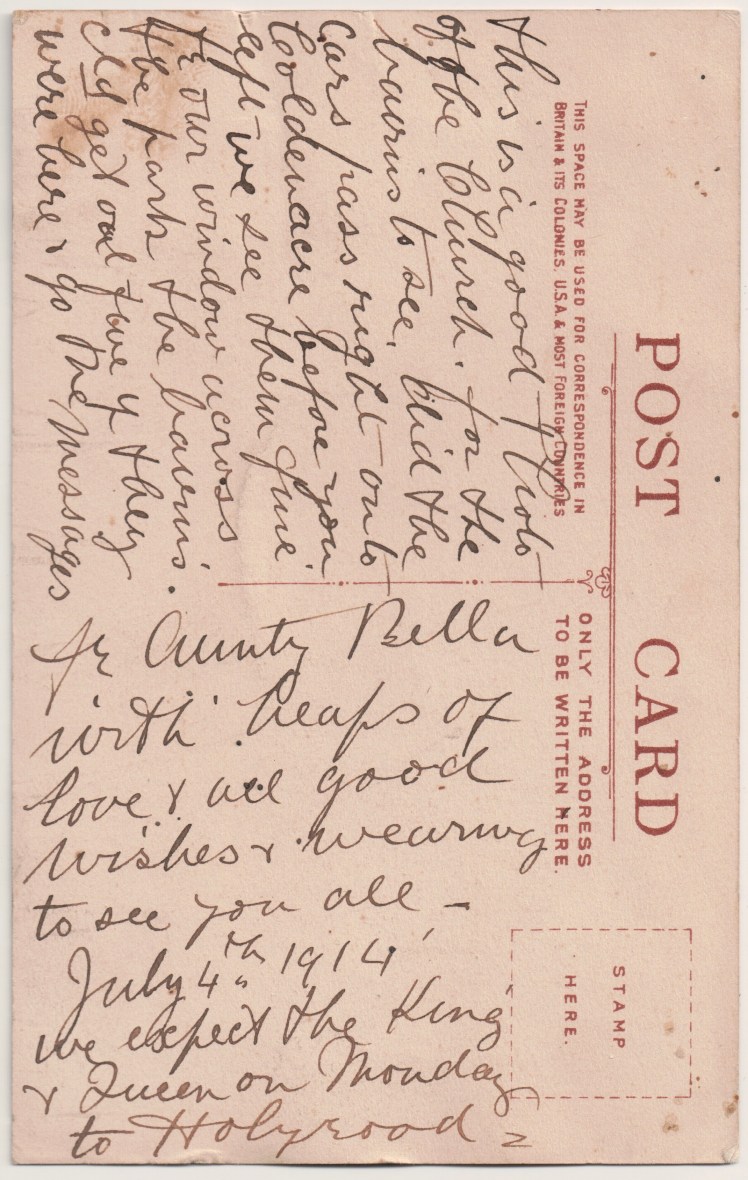 POST CARD
THIS SPACE MAY BE USED FOR CORRESPONDENCE IN
BRITAIN & ITS COLONIES, U.S.A. & MOST FOREIGN COUNTRIES
ONLY THE ADDRESS
TO BE WRITTEN HERE.
STAMP
HERE.
This is a good Photo
of the Church. for the
bairns to see. did the
Cars pass right onto
Goldenacre before you
left we see them fine
fr our window across
the park the bairns.
cld get out fine if they
were here & go the messages
fr Aunty Bella
with heaps of
love & all good
wishes & wearing
to see you all –
July 4th 1914
we expect the King
& Queen on Monday
to Holyrood =